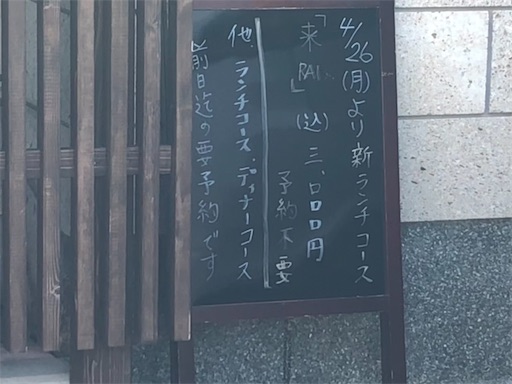 4/26(月)より新ランチコース
「来RAI」(込)三,000円
予約不要
他ランチコース、ディナーコース
前日迄の要予約です